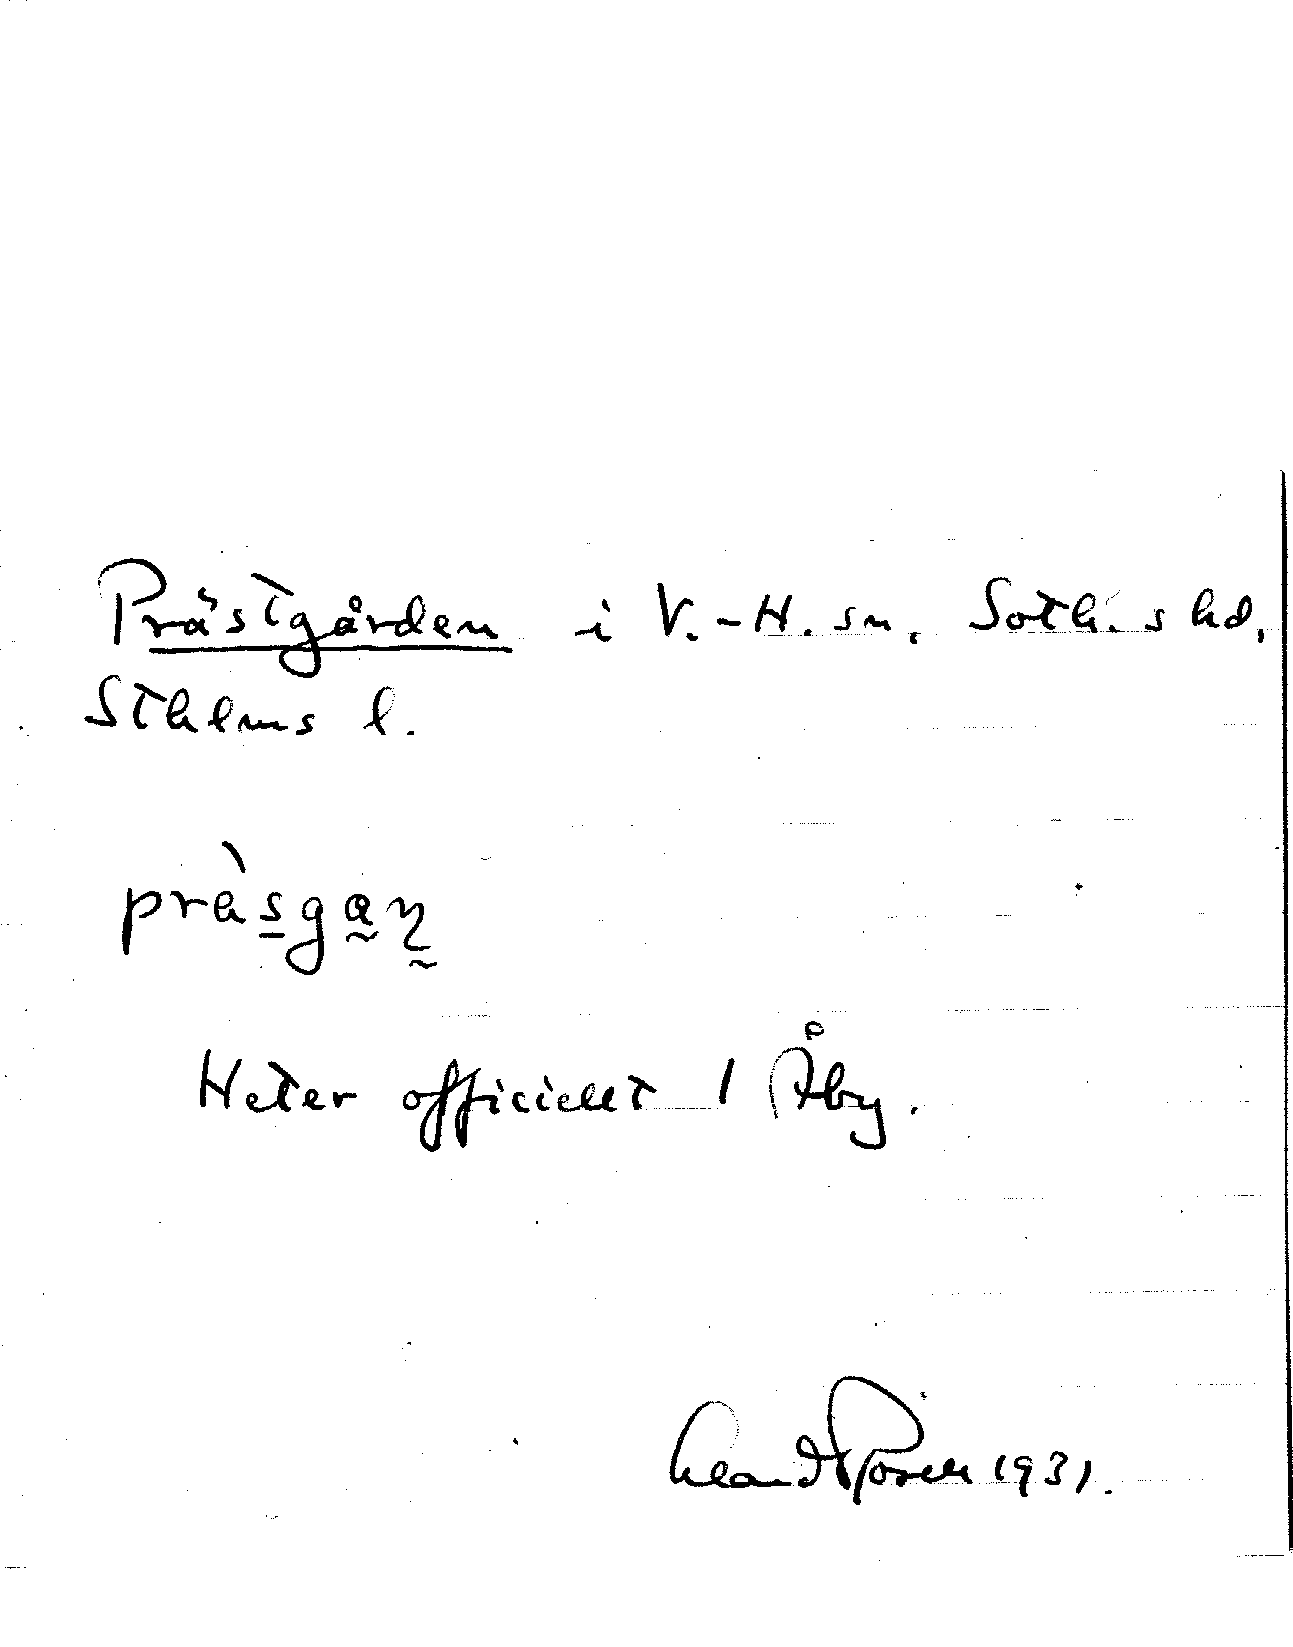 Prästgården i V.-H. sn, Soth. s hd,
Sthlms l.
präsgan
Heter officiellt 1 Åby.
1931.